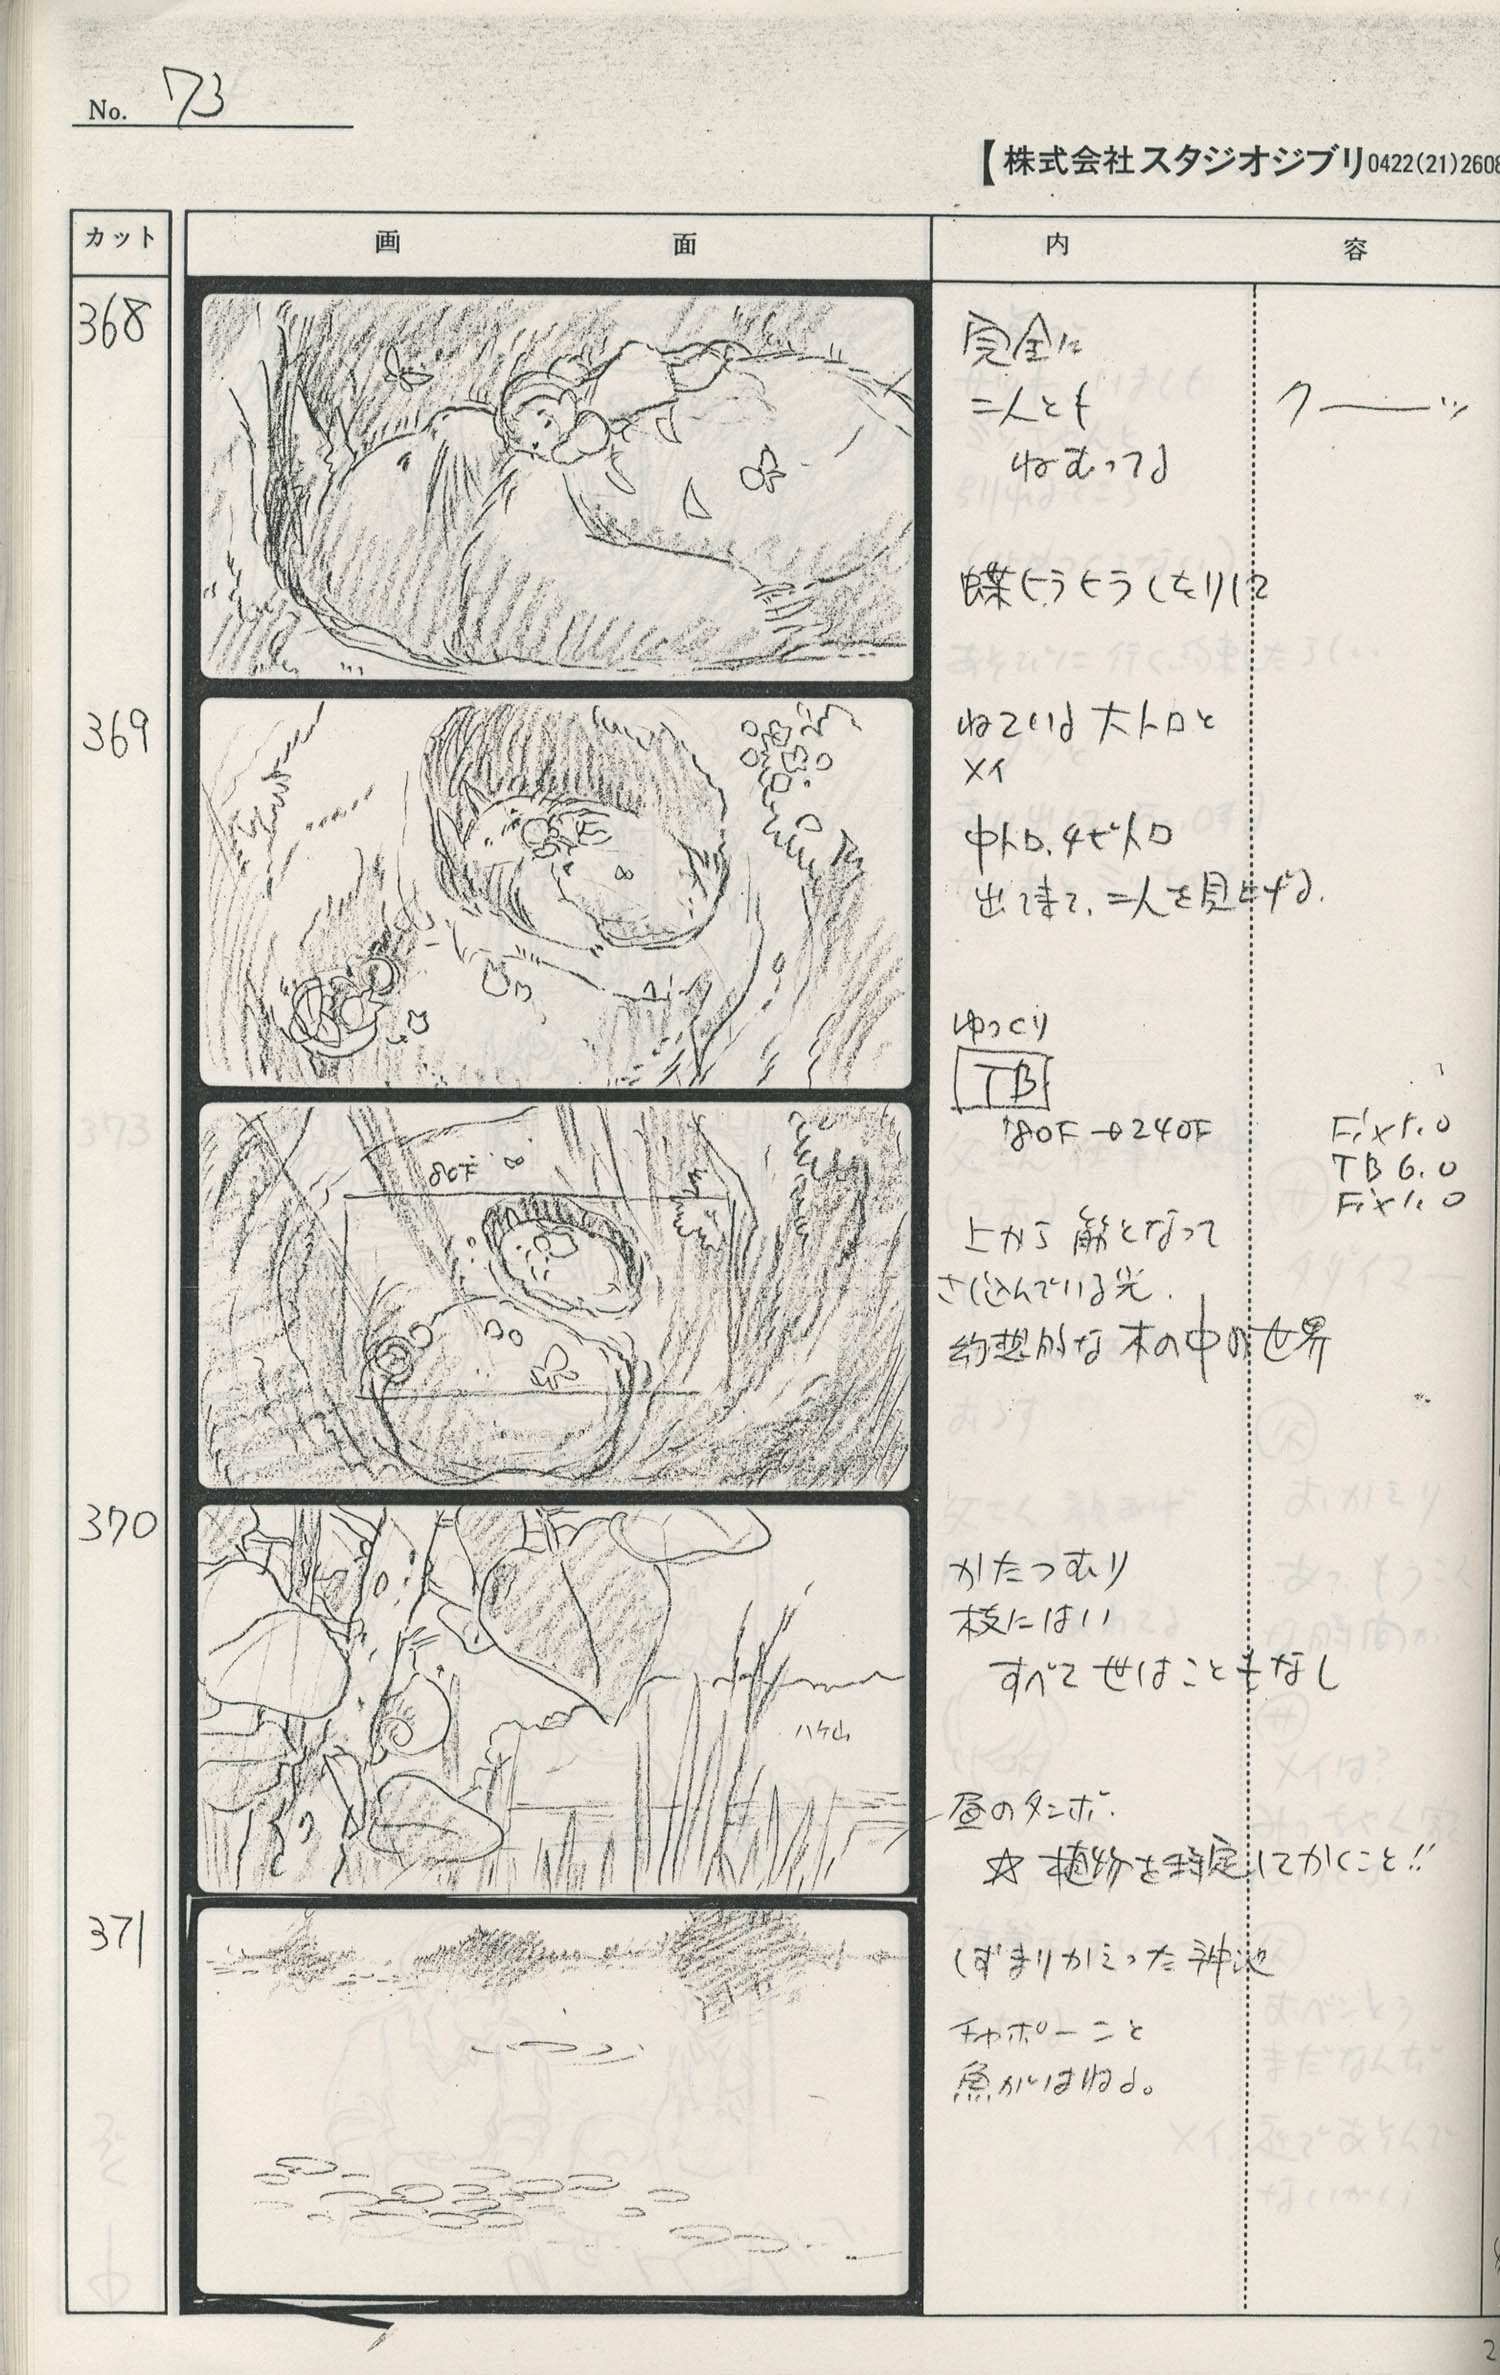 No. 73
【株式会社スタジオジブリ0422(21)2608
カット
画面
内容
368
完全に
二人とも
ねむってる
クーーッ
蝶ヒラヒラしたりして
369
ねている大トロと
メイ
中トロ、チビトロ
出て来て、二人を見上げる.
ゆっくり
TB
80F→240F
Fix1.0
TB 6.0
Fix1.0
80F
上から筋となって
さし込んでいる光.
幻想的な木の中の世界
370
かたつむり
枝にはい
すべて世はこともなし
ハケ山
昼のタンボ.
☆植物を特定してかくこと!!
371
しずまりかえった神池
チャポーンと
魚がはねる。
2